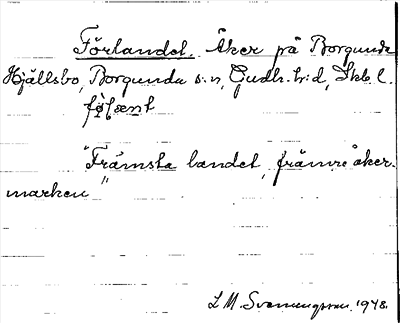 Förlandet. Åker på Borgunda
Hjällsbo, Borgunda s:n, Gudh. h:d, Skb. l.
"Främsta landet, främre åker-
marken"
L. M. Svenungsson. 1948.